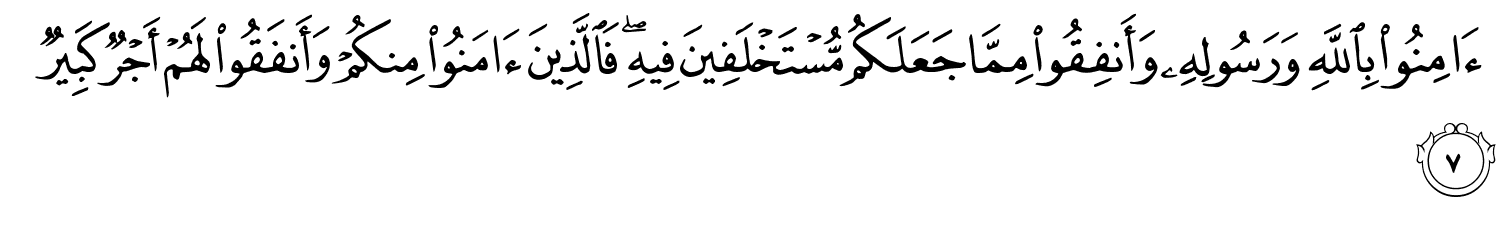 ءَامِنُوا۟ بِٱللَّهِ وَرَسُولِهِۦ وَأَنفِقُوا۟ مِمَّا جَعَلَكُم مُّسْتَخْلَفِينَ فِيهِ ۖ فَٱلَّذِينَ ءَامَنُوا۟ مِنكُمْ وَأَنفَقُوا۟ لَهُمْ أَجْرٌ كَبِيرٌ
٧